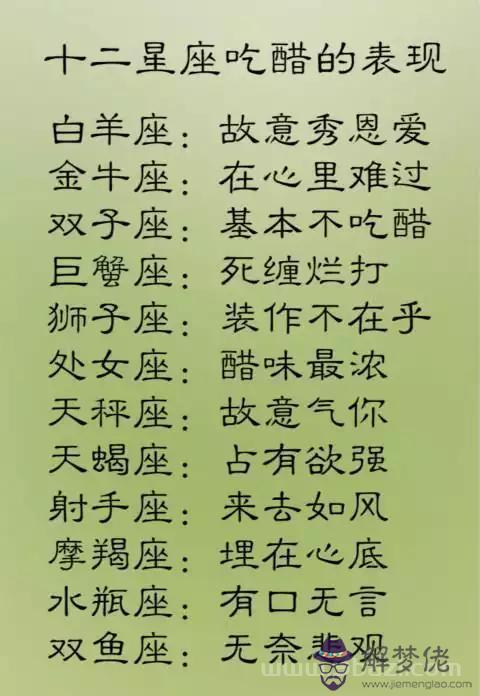 十二星座吃醋的表现
白羊座：故意秀恩爱
金牛座：在心里难过
双子座：基本不吃醋
巨蟹座：死缠烂打
狮子座：装作不在乎
处女座：醋味最浓
天秤座：故意气你
天蝎座：占有欲强
射手座：来去如风
摩羯座：埋在心底
水瓶座：有口无言
双鱼座：无奈悲观
解梦佬
www.jiemenglao.com